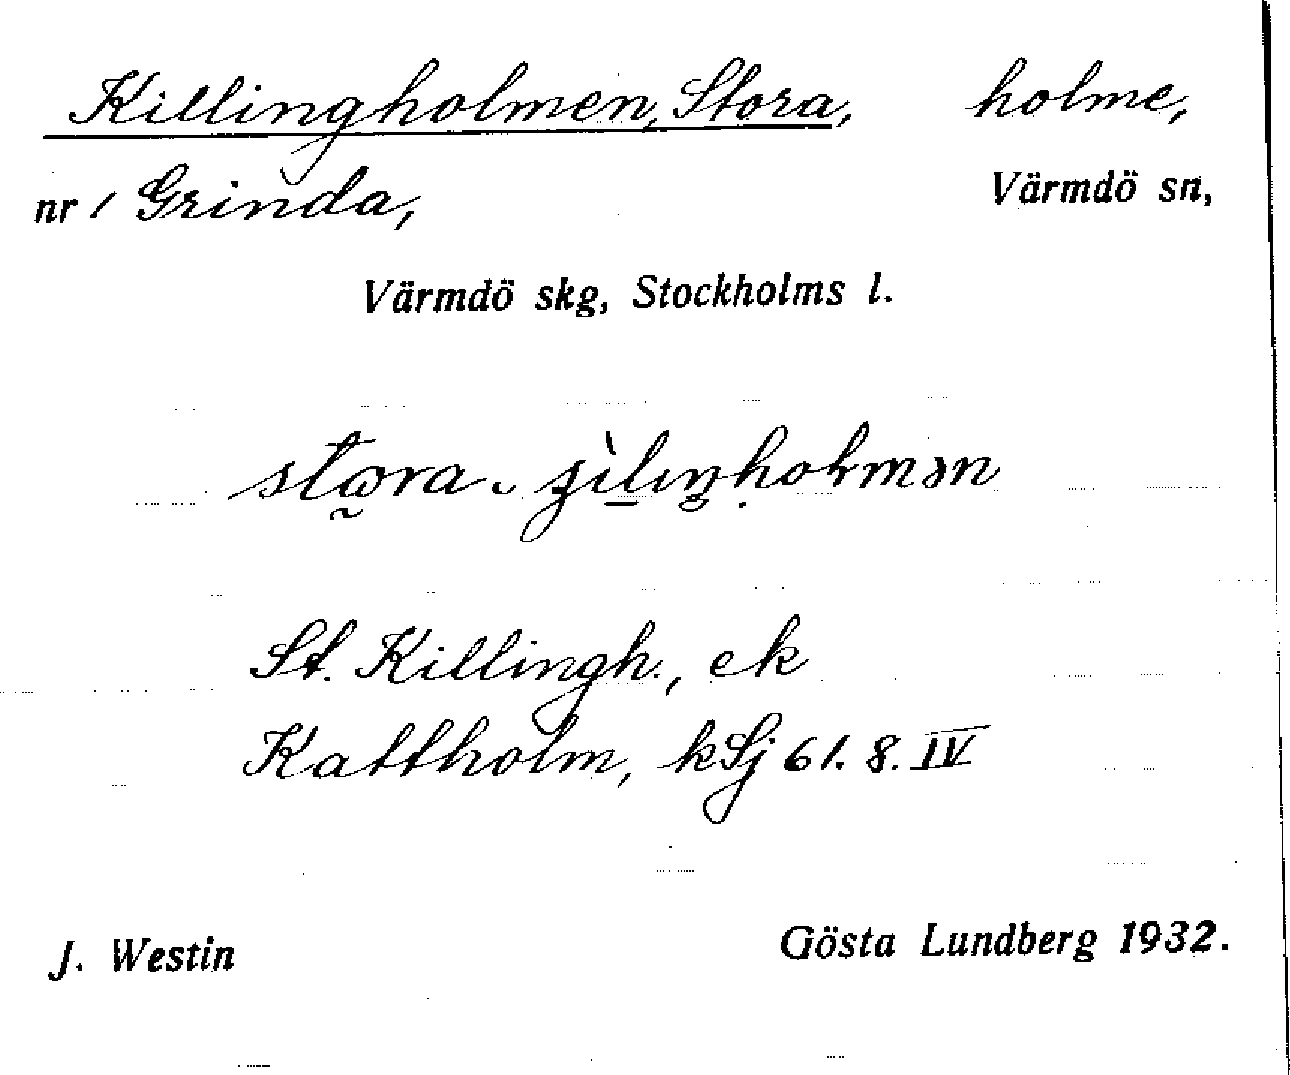 Killingholmen, Stora, holme,
nr 1 Grinda, Värmdö sn,
Värmdö skg, Stockholms l.
St. Killingh., ek
Kattholm, kSj 61. 8. IV
J. Westin Gösta Lundberg 1932.